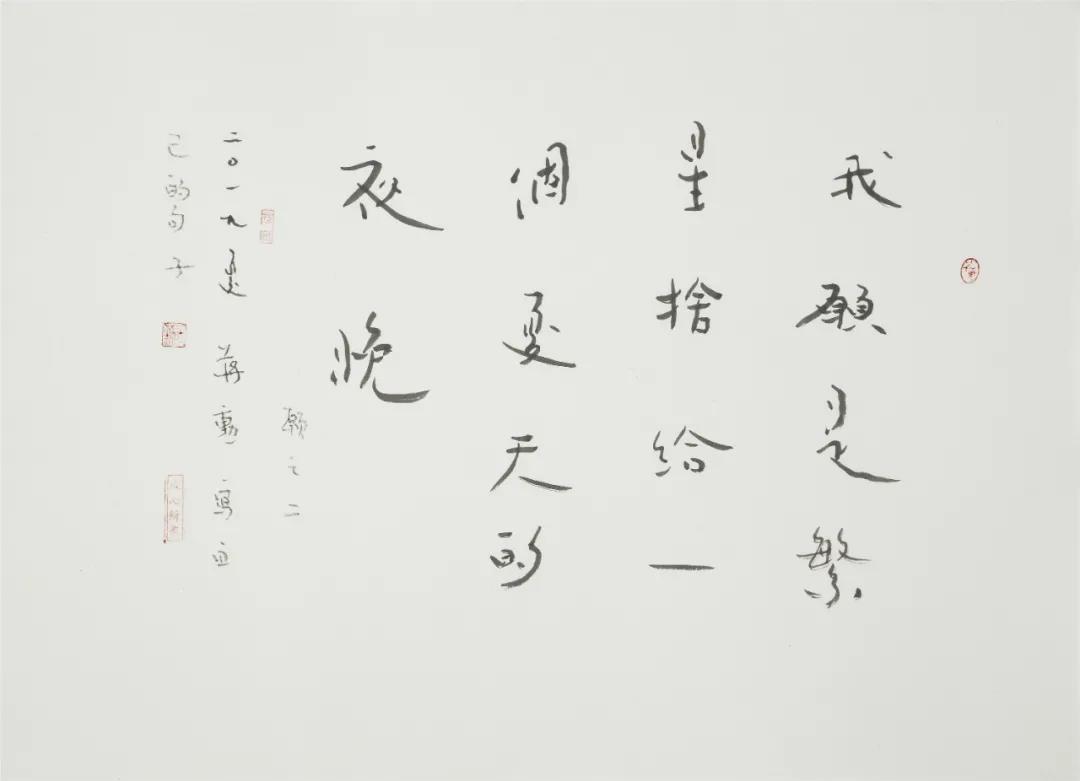 我願是繁
星捨給一
個夏天的
夜晚
願之二
二〇一九夏 蔣勳 寫自
己的句子